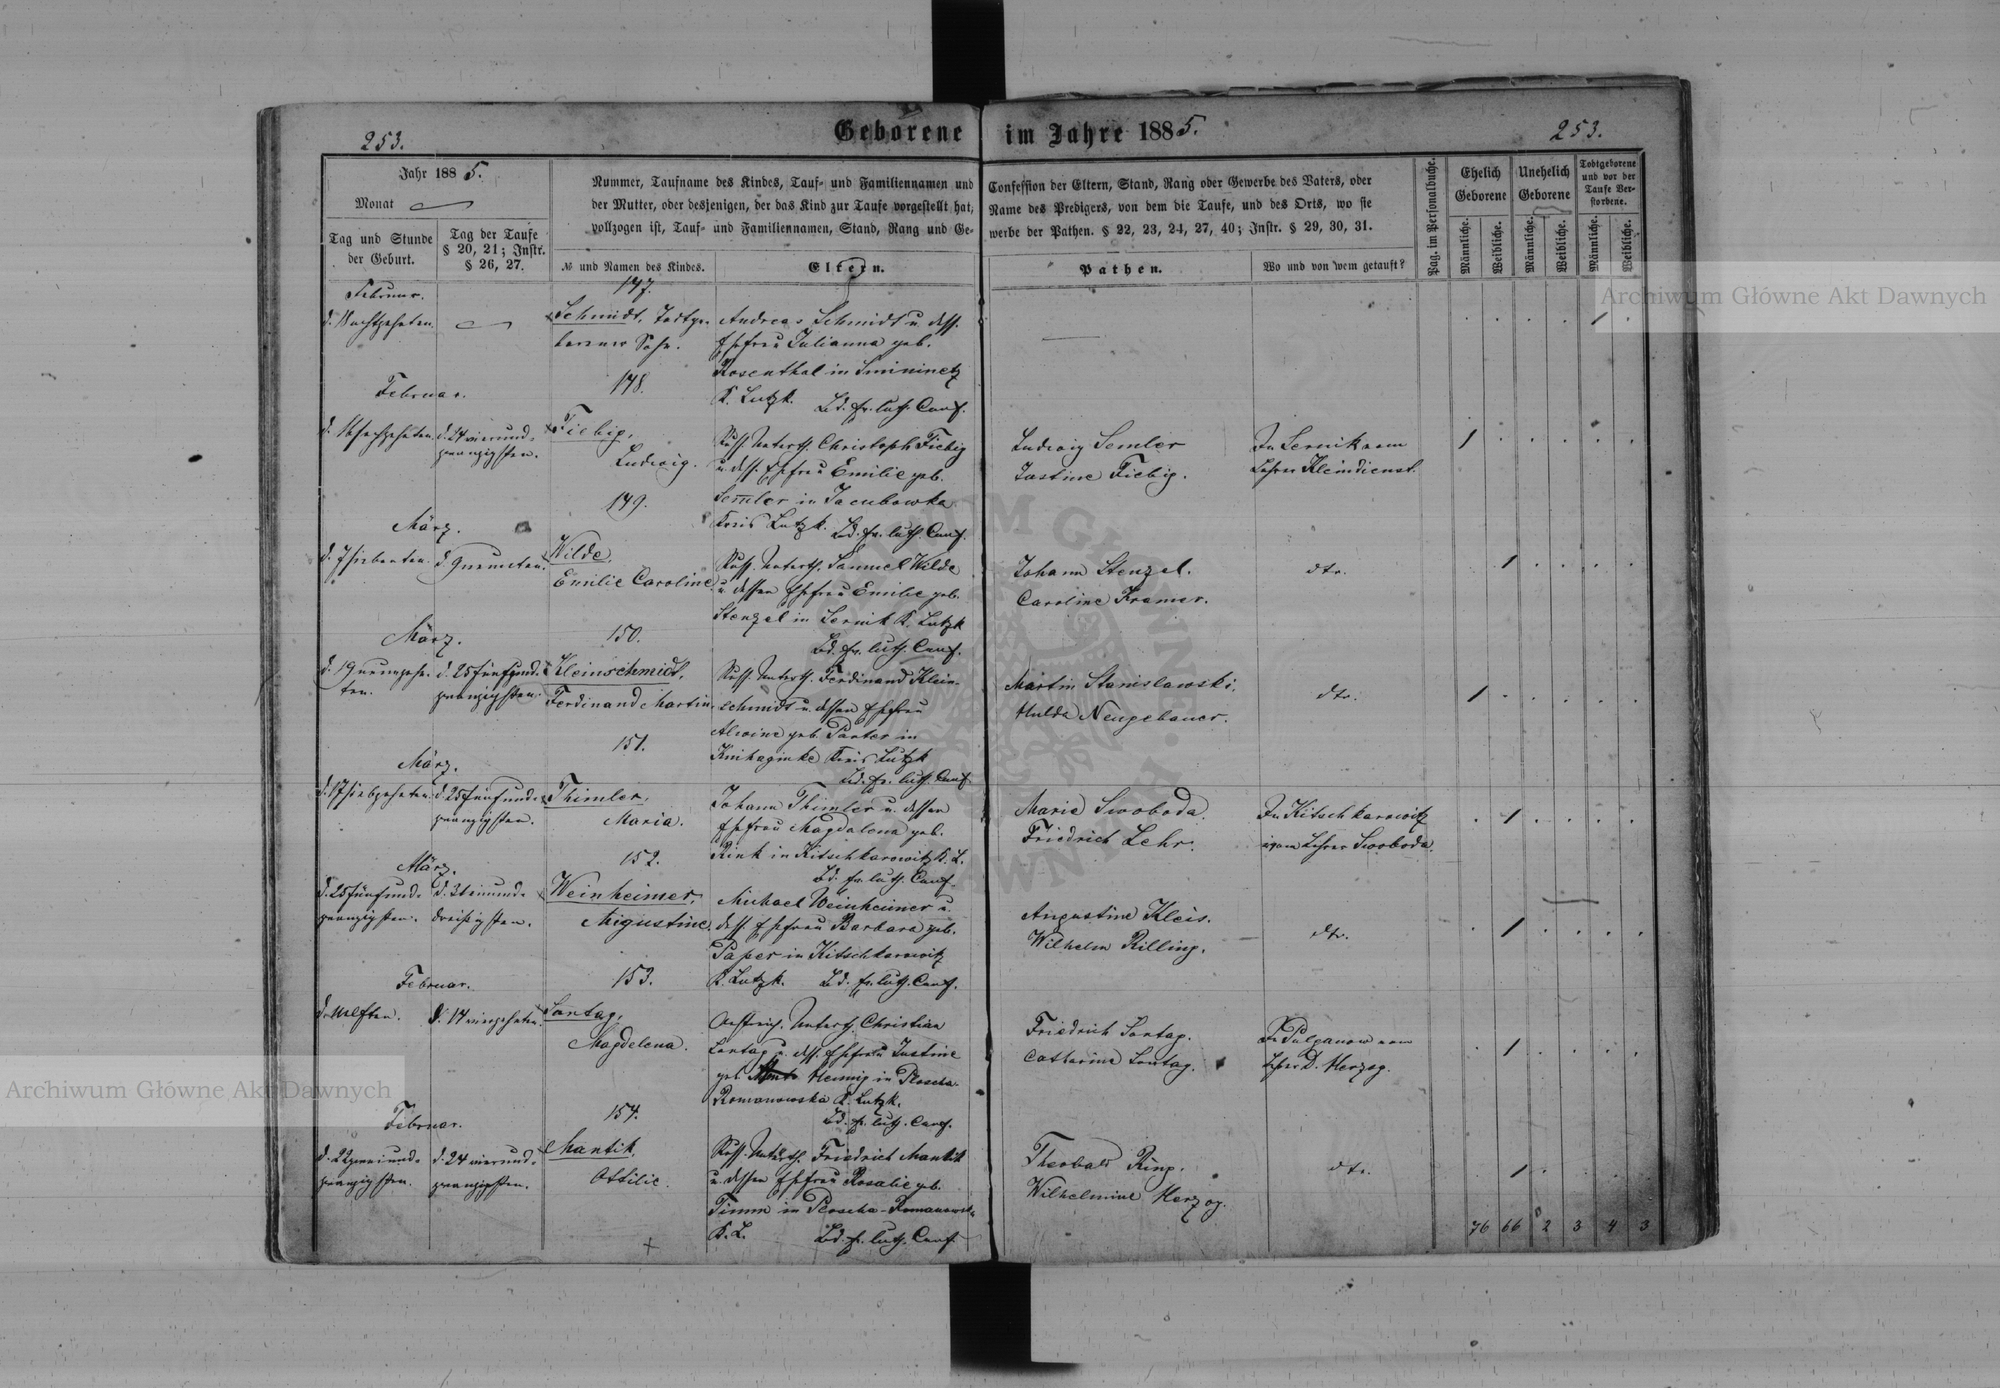 253.
Geborene im Jahre 1885.
253.
Jahr 1885.
Monat
Tag und Stunde
der Geburt.
Tag der Taufe
§ 20, 21; Instr.
§ 26, 27.
Nummer, Taufname des Kindes, Tauf- und Familiennamen und
der Mutter, oder desjenigen, der das Kind zur Taufe vorgestellt hat;
vollzogen ist, Tauf- und Familiennamen, Stand, Rang und Ge-
№ und Namen des Kindes.
Eltern.
Confession der Eltern, Stand, Rang oder Gewerbe des Vaters, oder
Name des Predigers, von dem die Taufe, und des Orts, wo sie
werbe der Pathen. § 22, 23, 24, 27, 40; Instr. § 29, 30, 31.
Pathen.
Wo und von wem getauft?
Pag. im Personalbuche.
Ehelich
Geborene
Unehelich
Geborene
Todtgeborene
und vor der
Taufe Ver-
storbene.
Männliche.
Weibliche.
Männliche.
Weibliche.
Männliche.
Weibliche.
Februar.
147.
d. 18 achtzehnten.
Schmidt, Todtge-
borener Sohn.
Andreas Schmidt u. dess.
Ehefrau Julianna geb.
Rosenthal in
K. Lutzk. Bd. ev. luth. Conf.
Februar.
148.
d. 16 sechzehnten.
d. 24 vierund-
zwanzigsten.
Fiebig,
Ludwig.
Russ. Unterth. Christoph Fiebig
u. dess. Ehefrau Emilie geb.
Semler in Jacubowka
Kreis Lutzk. Bd. ev. luth. Conf.
Ludwig Semler
Justine Fiebig.
In Sernik vom
Lehrer Kleindienst.
März.
149.
d. 7 siebenten.
d. 9 neunten.
Wilde,
Emilie Caroline.
Russ. Unterth. Samuel Wilde
u. dessen Ehefrau Emilie geb.
Stenzel in Sernik K. Lutzk
Bd. ev. luth. Conf.
Johann Stenzel.
Caroline Kramer.
dto.
März.
150.
d. 19 neunzehn-
ten.
d. 25 fünfund-
zwanzigsten.
Kleinschmidt,
Ferdinand Martin.
Russ. Unterth. Ferdinand Klein-
schmidt u. dessen Ehefrau
Alwine geb. Panter in
Kreis Lutzk
Bd. ev. luth. Conf.
Martin Stanislawski.
Hulda Neugebauer.
dto.
März.
151.
d. 17 siebzehnten.
d. 25 fünfund-
zwanzigsten.
Thimler,
Maria.
Johann Thimler u. dessen
Ehefrau Magdalena geb.
Rink in Kitschkarowitz K. L.
Bd. ev. luth. Conf.
Marie Swoboda.
Friedrich Lehr.
In Kitschkarowitz
vom Lehrer Swoboda.
März.
152.
d. 25 fünfund-
zwanzigsten.
d. 31 einund-
dreißigsten.
Weinheimer,
Augustine.
Michael Weinheimer u.
dess. Ehefrau Barbara geb.
in Kitschkarowitz
K. Lutzk. Bd. ev. luth. Conf.
Augustine Kleis.
Wilhelm Rilling.
dto.
Februar.
153.
d. 11 elften.
d. 14 vierzehnten.
Sontag,
Magdelena.
Oestreich. Unterth. Christian
Sontag u. dess. Ehefrau Justine
geb. Hennig in Ploscha-
Romanowska K. Lutzk.
Bd. ev. luth. Conf.
Friedrich Sontag.
Catharine Sontag.
In Pulganow vom
Lehrer D. Herzog.
Februar.
154.
d. 22 zweiund-
zwanzigsten.
d. 24 vierund-
zwanzigsten.
Mantik,
Ottilie.
Russ. Unterth. Friedrich Mantik
u. dessen Ehefrau Rosalie geb.
Timm in Ploscha-
K. L. Bd. ev. luth. Conf.
Theobald Ring.
Wilhelmine Herzog.
dto.
76 66 2 3 4 3
Archiwum Główne Akt Dawnych
Archiwum Główne Akt Dawnych